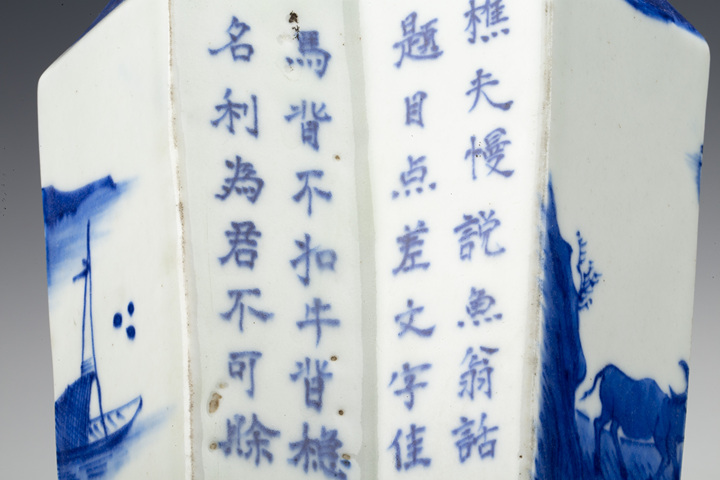 樵夫慢説魚翁話
題目点差文字佳
馬背不扣牛背穏
名利為君不可賖